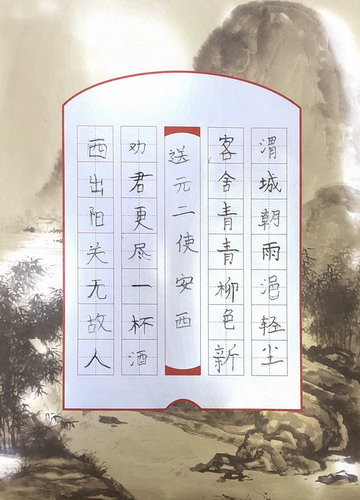 渭城朝雨浥轻尘
客舍青青柳色新
送元二使安西
劝君更尽一杯酒
西出阳关无故人